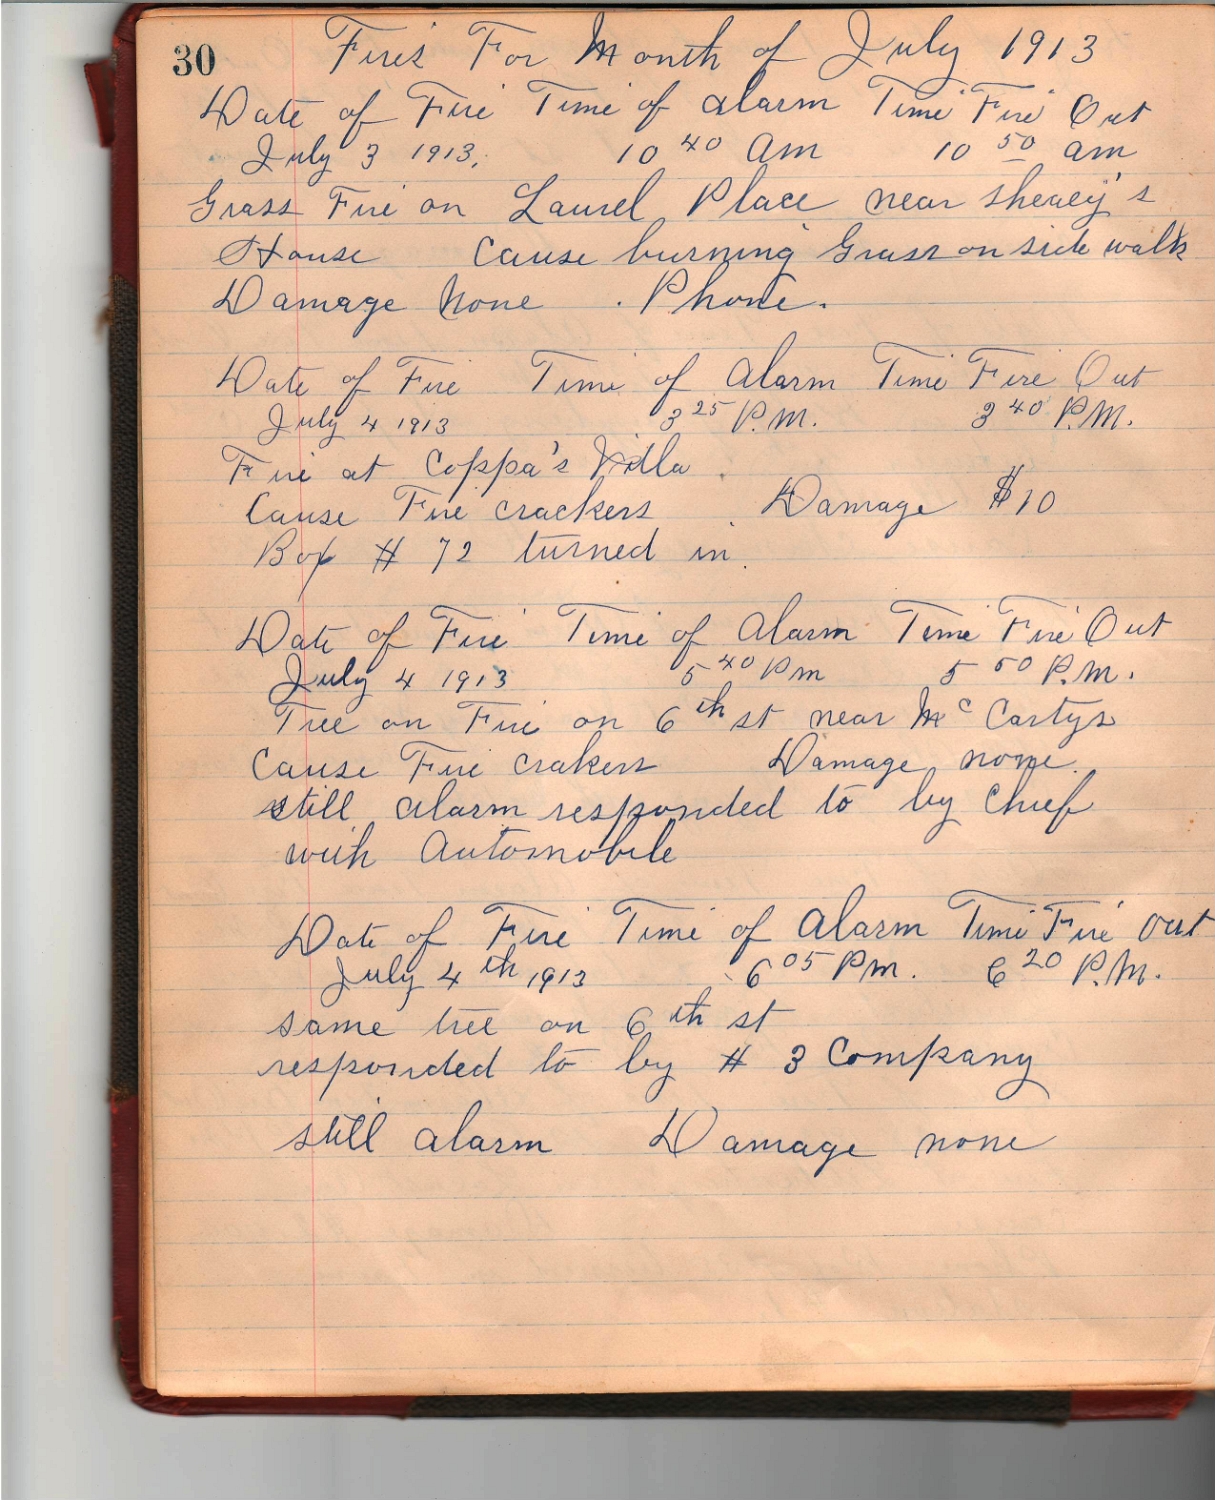 30
Fires For Month of July 1913
Date of Fire Time of alarm Time Fire Out
July 3 1913. 10 40 am 10 50 am
Grass Fire on Laurel Place near Shealey's
House Cause burning Grass on side walk
Damage None . Phone.
Date of Fire Time of Alarm Time Fire Out
July 4 1913 3 25 P.M. 3 40 P.M.
Fire at Coppa's Villa
Cause Fire crackers Damage $10
Box # 72 turned in.
Date of Fire Time of Alarm Time Fire Out
July 4 1913 5 40 Pm 5 50 P.M.
Tree on Fire on 6th st near McCartys
Cause Fire crakers Damage none.
still alarm responded to by Chief
with Automobile
Date of Fire Time of Alarm Time Fire out
July 4th 1913 6 05 Pm. 6 20 P.M.
same tree on 6th st
responded to by # 3 Company
still alarm Damage none